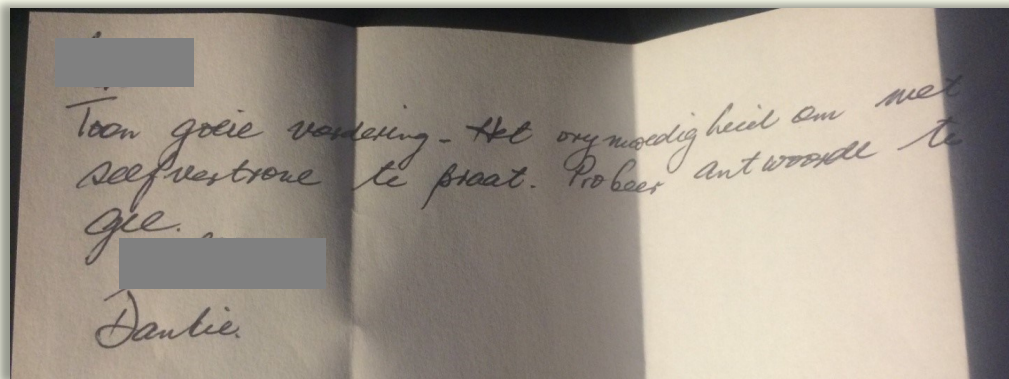 Toon goeie vordering - Het vrymoedigheid om met
selfvertroue te praat. Probeer antwoorde te
gee.
Dankie.